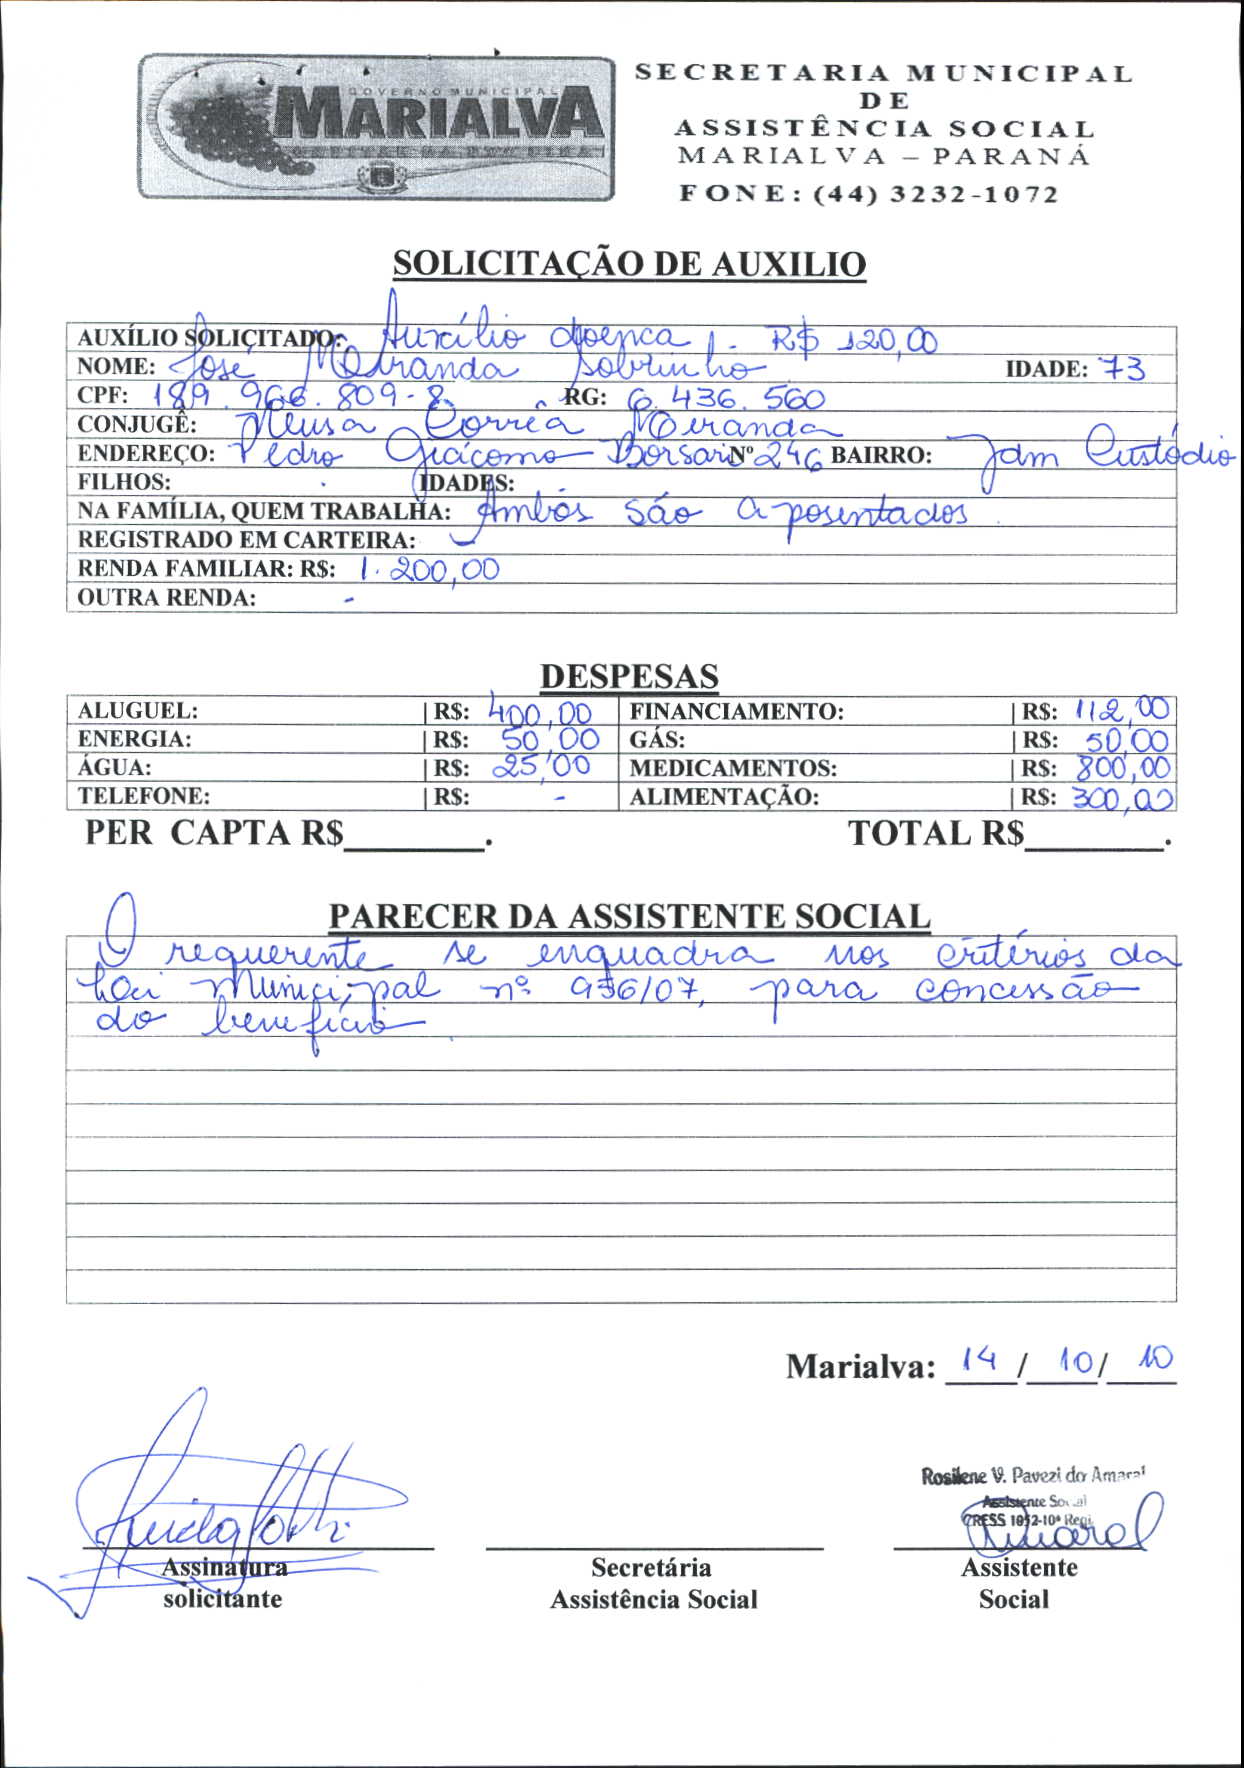 GOVERNO MUNICIPAL
MARIALVA
SECRETARIA MUNICIPAL
DE
ASSISTÊNCIA SOCIAL
MARIALVA – PARANÁ
FONE: (44) 3232-1072
SOLICITAÇÃO DE AUXILIO
AUXÍLIO SOLICITADO: Auxílio doença. R$ 120,00
NOME: José Miranda Sobrinho IDADE: 73
CPF: 189.966.809-8 RG: 6.436.560
CONJUGÊ: Neusa Corrêa Miranda
ENDEREÇO: Pedro Giácomo Borsari Nº 246 BAIRRO: Jdm Custódio
FILHOS: IDADES:
NA FAMÍLIA, QUEM TRABALHA: Ambos são aposentados
REGISTRADO EM CARTEIRA:
RENDA FAMILIAR: R$: 1.200,00
OUTRA RENDA: -
DESPESAS
ALUGUEL: | R$: 400,00 FINANCIAMENTO: | R$: 112,00
ENERGIA: | R$: 50,00 GÁS: | R$: 50,00
ÁGUA: | R$: 25,00 MEDICAMENTOS: | R$: 800,00
TELEFONE: | R$: - ALIMENTAÇÃO: | R$: 300,00
PER CAPTA R$________. TOTAL R$________.
PARECER DA ASSISTENTE SOCIAL
O requerente se enquadra nos critérios da
Lei Municipal nº 936/07, para concessão
do benefício
Marialva: 14 / 10 / 10
Rosilene V. Pavezi do Amaral
Assistente Social
CRESS 1052-10ª Regi
Amaral
Assinatura Secretária Assistente
solicitante Assistência Social Social